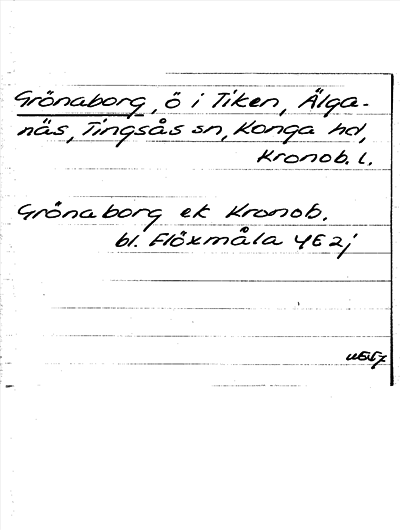 Grönaborg, ö i Tiken, Älga-
näs, Tingsås sn, Konga hd,
Kronob. l.
Gröna borg ek Kronob.
bl. Flöxmåla 4E2j